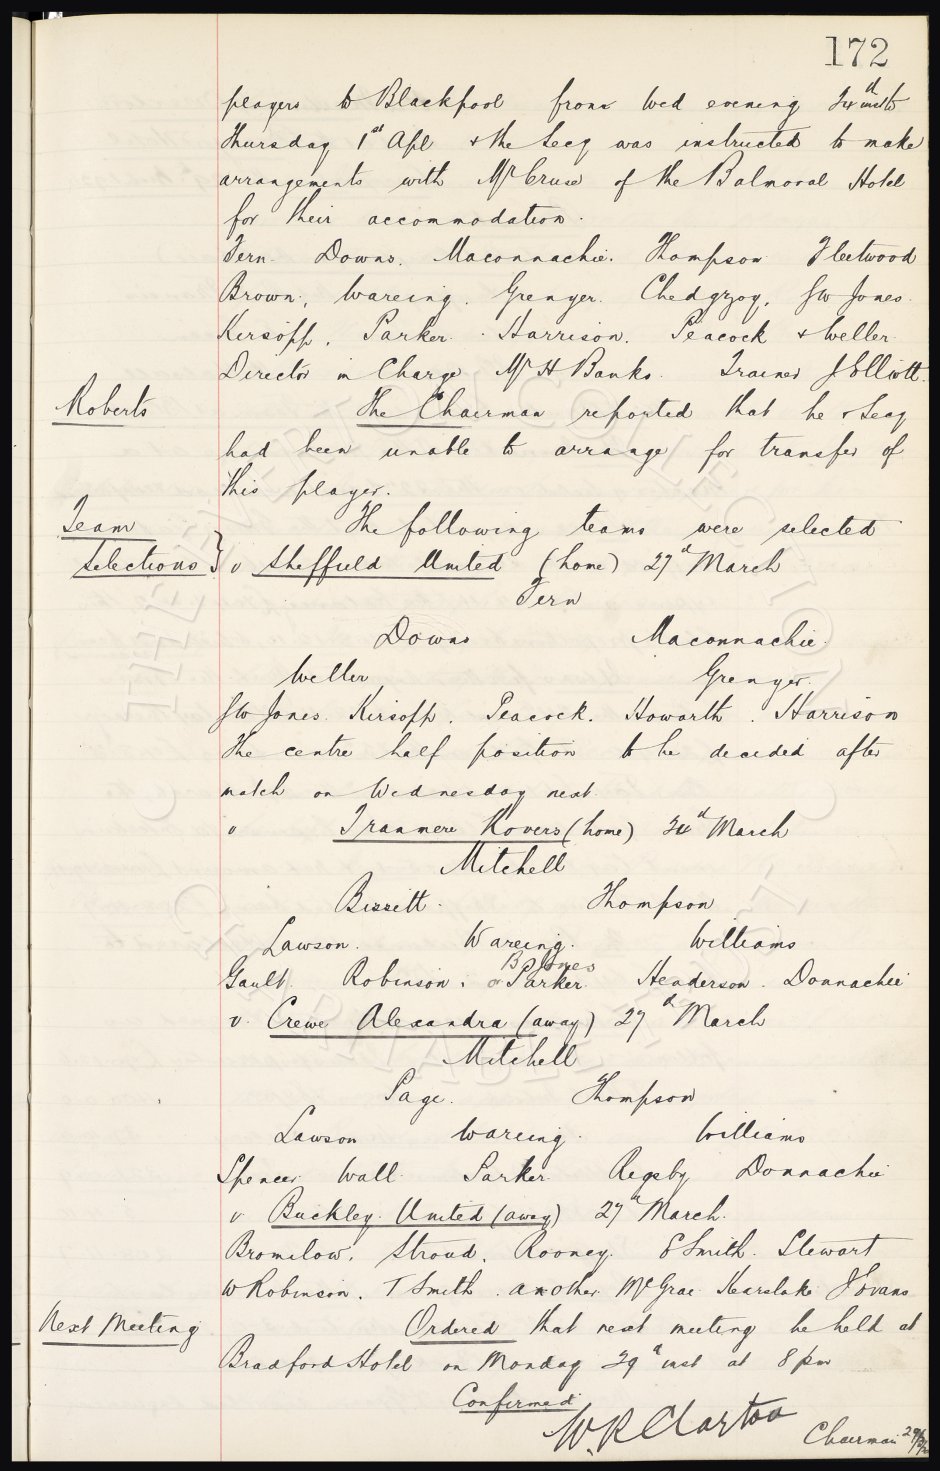 172
players to Blackpool from Wed evening 24th inst to
Thursday 1st Apl & the Secy was instructed to make
arrangements with Mr Cruse of the Balmoral Hotel
for their accommodation.
Fern. Downs. Maconnachie. Thompson Fleetwood
Brown, Wareing. Grenyer. Chedgzoy, JW Jones.
Kirsopp, Parker. Harrison. Peacock & Weller.
Director in Charge Mr H Banks. Trainer J Elliott.
Roberts
The Chairman reported that he & Secy
had been unable to arrange for transfer of
this player.
Team
Selections }
The following teams were selected
v Sheffield United (home) 27th March
Fern
Downs Maconnachie.
Weller Grenyer.
JW Jones. Kirsopp. Peacock. Howarth. Harrison
The centre half position to be decided after
match on Wednesday next.
v Tranmere Rovers (home) 24th March
Mitchell
Bissett. Thompson
Lawson. Wareing. Williams
B Jones
Gault. Robinson. or Parker. Henderson. Donnachie
v. Crewe Alexandra (away) 27th March
Mitchell
Page. Thompson
Lawson Wareing. Williams
Spencer Wall Parker Rigsby Donnachie
v Buckley United (away) 27th March.
Bromilow, Stroud, Rooney. E Smith. Stewart
W Robinson. T Smith. another McGrae Kearslake J Evans
Next Meeting
Ordered that next meeting be held at
Bradford Hotel on Monday 29th inst at 8 pm
Confirmed
W.R Clayton
Chairman